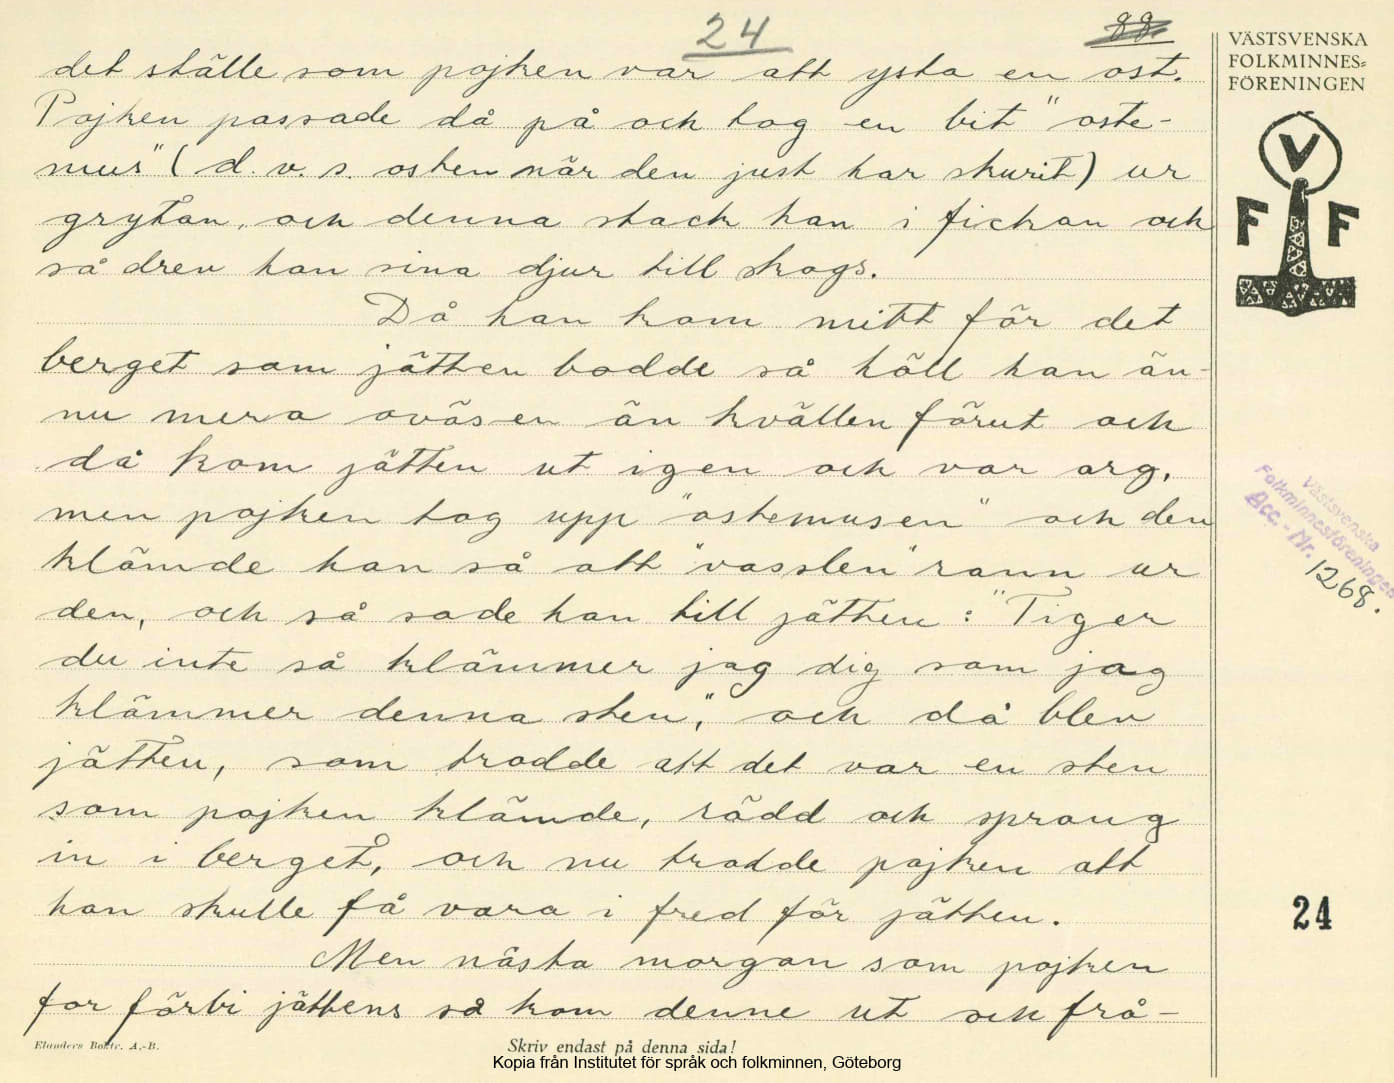 24
88.
det ställe som pojken var att ysta en ost.
Pojken passade då på och tog en bit "oste-
mus" (d.v.s. osten när den just har skurit) ur
grytan, och denna stack han i fickan och
så drev han sina djur till skogs.
Då han kom mitt för det
berget som jätten bodde så höll han än-
nu mera oväsen än kvällen förut och
då kom jätten ut igen och var arg,
men pojken tog upp "ostemusen" och den
klämde han så att "vasslen" rann ur
den, och så sade han till jätten: "Tiger
du inte så klämmer jag dig som jag
klämmer denna sten", och då blev
jätten, som trodde att det var en sten
som pojken klämde, rädd och sprang
in i berget, och nu trodde pojken att
han skulle få vara i fred för jätten.
Men nästa morgon som pojken
for förbi jättens så kom denne ut och frå-
Elanders Boktr. A.-B.
Skriv endast på denna sida!
Kopia från Institutet för språk och folkminnen, Göteborg
VÄSTSVENSKA
FOLKMINNES-
FÖRENINGEN
V
F F
Västsvenska
Folkminnesföreningen
Acc.-Nr. 1268.
24